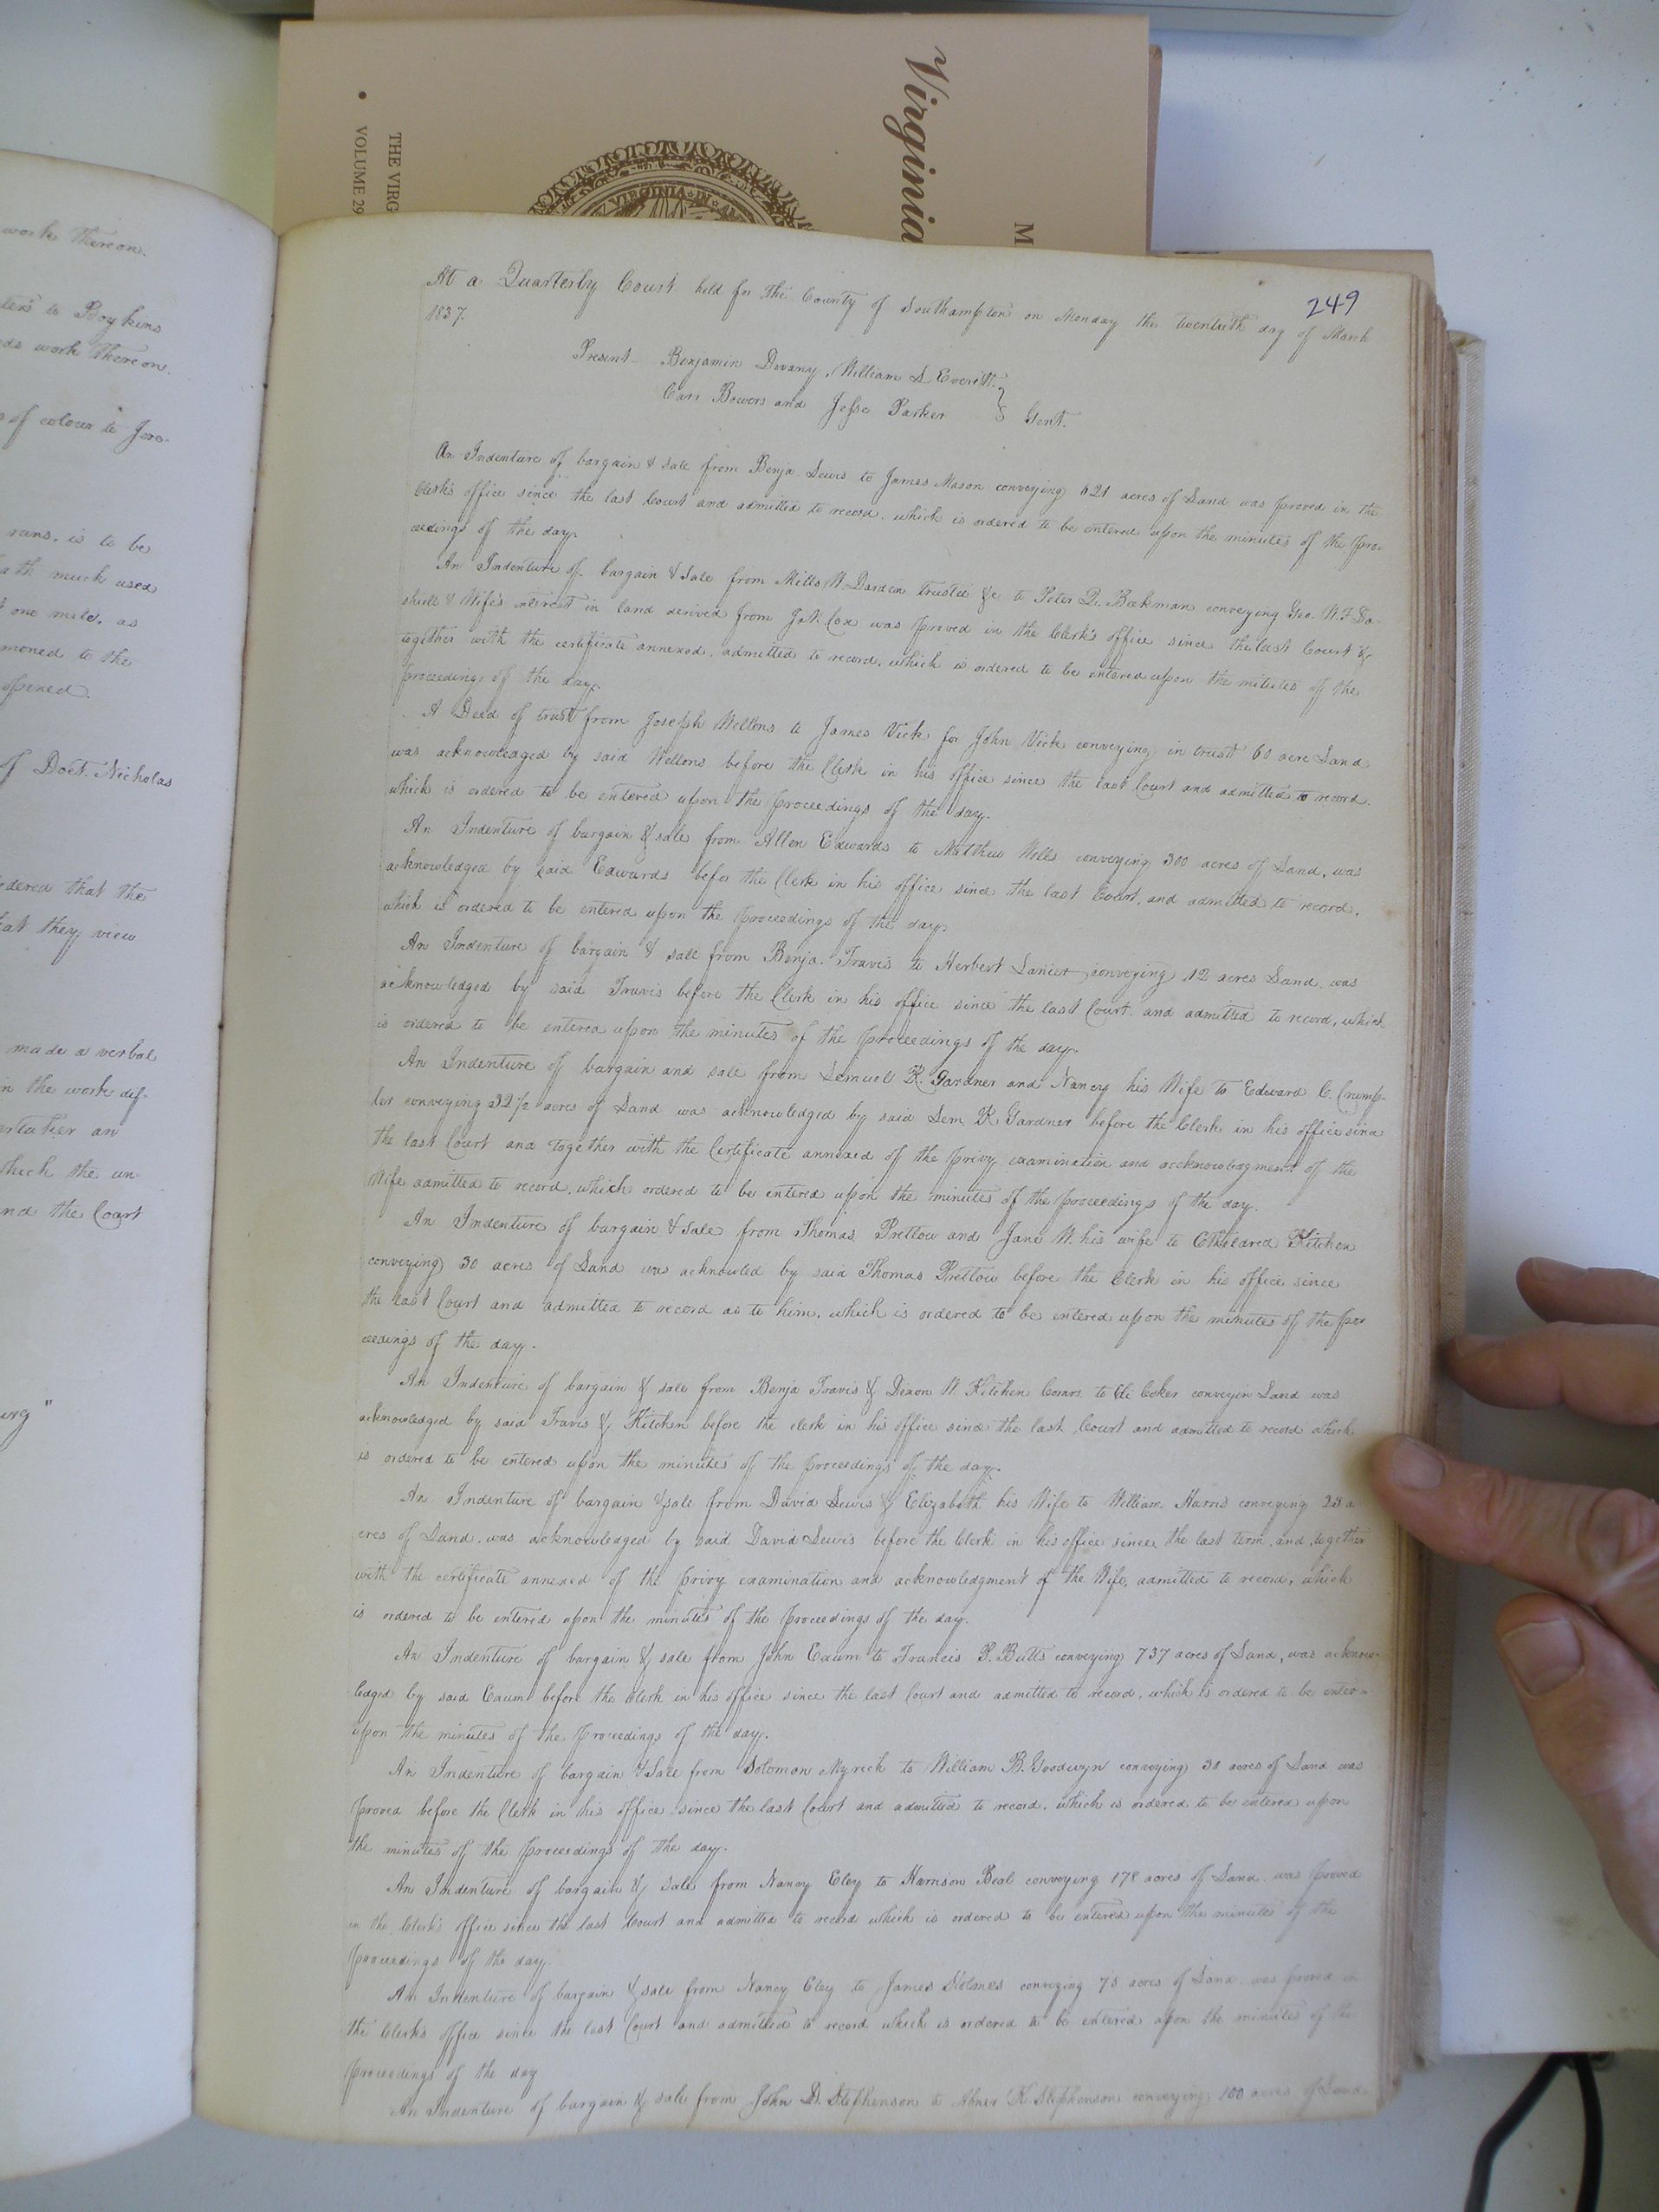 Virginia
M
THE VIRG
• VOLUME 29
VIRGINIA IN
work thereon.
to Boykins
work thereon.
of colour to Jere-
runs, is to be
ath much used
one mile, as
moned to the
opened.
of Doct. Nicholas
dered that the
at they view
made a verbal
n the work dif-
an
which the un
nd the Court
249
At a Quarterly Court held for the County of Southampton on Monday the twentieth day of March
1837.
Present Benjamin Devany, William D Everitt
Carr Bowers and Jesse Parker } Gent.
An Indenture of bargain & sale from Benja. Lewis to James Mason conveying 621 acres of Land was proved in the
Clerk's office since the last Court and admitted to record. which is ordered to be entered upon the minutes of the pro-
ceedings of the day.
An Indenture of bargain & sale from Mills W. Darden trustee &c to Peter D. Beekman conveying Geo. W. F. Da-
shiell & Wife's interest in land derived from J. N. Cox was proved in the Clerk's office since the last Court &
together with the certificate annexed, admitted to record, which is ordered to be entered upon the mitutes of the
proceedings of the day.
A Deed of trust from Joseph Wellons to James Vick for John Vick conveying in trust 60 acre Land
was acknowledged by said Wellons before the Clerk in his office since the last Court and admitted to record.
which is ordered to be entered upon the proceedings of the day.
An Indenture of bargain & sale from Allen Edwards to Matthew Wells conveying 300 acres of Land, was
acknowledged by said Edwards befor the Clerk in his office since the last Court, and admitted to record,
which is ordered to be entered upon the proceedings of the day.
An Indenture of bargain & sale from Benja. Travis to Herbert Lanier conveying 12 acres Land was
acknowledged by said Travis before the Clerk in his office since the last Court. and admitted to record, which
is ordered to be entered upon the minutes of the proceedings of the day.
An Indenture of bargain and sale from Lemuel R. Gardner and Nancy his Wife to Edward C. Crump-
ler conveying 32½ acres of Land was acknowledged by said Lem. R Gardner before the Clerk in his office since
the last Court and together with the Certificate annexed of the privy examination and acknowledgment of the
Wife admitted to record, which ordered to be entered upon the minutes of the proceedings of the day.
An Indenture of bargain & sale from Thomas Pretlow and Jane W. his wife to Etheldred Kitchen
conveying 30 acres of Land was acknowled by said Thomas Pretlow before the Clerk in his office since
the last Court and admitted to record as to him, which is ordered to be entered upon the minutes of the pro
ceedings of the day.
An Indenture of bargain & sale from Benja Travis & Dixon W. Kitchen Comrs. to Eli Coker conveyin Land was
acknowledged by said Travis & Kitchen before the clerk in his office since the last Court and admitted to record which
is ordered to be entered upon the minutes of the proceedings of the day.
An Indenture of bargain & sale from David Lewis & Elizabeth his Wife to William Harris conveying 23 a
cres of Land. was acknowledged by said David Lewis before the Clerk in his office since the last term, and, together
with the certificate annexed of the privy examination and acknowledgment of the Wife, admitted to record, which
is ordered to be entered upon the minutes of the proceedings of the day.
An Indenture of bargain & sale from John Exum to Francis P. Butts conveying 737 acres of Land, was acknow-
ledged by said Exum before the Clerk in his office since the last Court and admitted to record, which is ordered to be enter-
upon the minutes of the proceedings of the day.
An Indenture of bargain & sale from Solomon Myrick to William B. Goodwyn conveying 30 acres of Land was
proved before the Clerk in his office since the last Court and admitted to record. which is ordered to be entered upon
the minutes of the proceedings of the day.
An Indenture of bargain & sale from Nancy Eley to Harrison Beal conveying 178 acres of Land was proved
in the Clerk's office since the last Court and admitted to record which is ordered to be entered upon the minutes of the
proceedings of the day.
An Indenture of bargain & sale from Nancy Eley to James Holmes conveying 75 acres of Land was proved in
the Clerk's office since the last Court and admitted to record which is ordered to be entered upon the minutes of the
proceedings of the day
An Indenture of bargain & sale from John D. Stephenson to Abner K Stephenson conveying 100 acres of Land